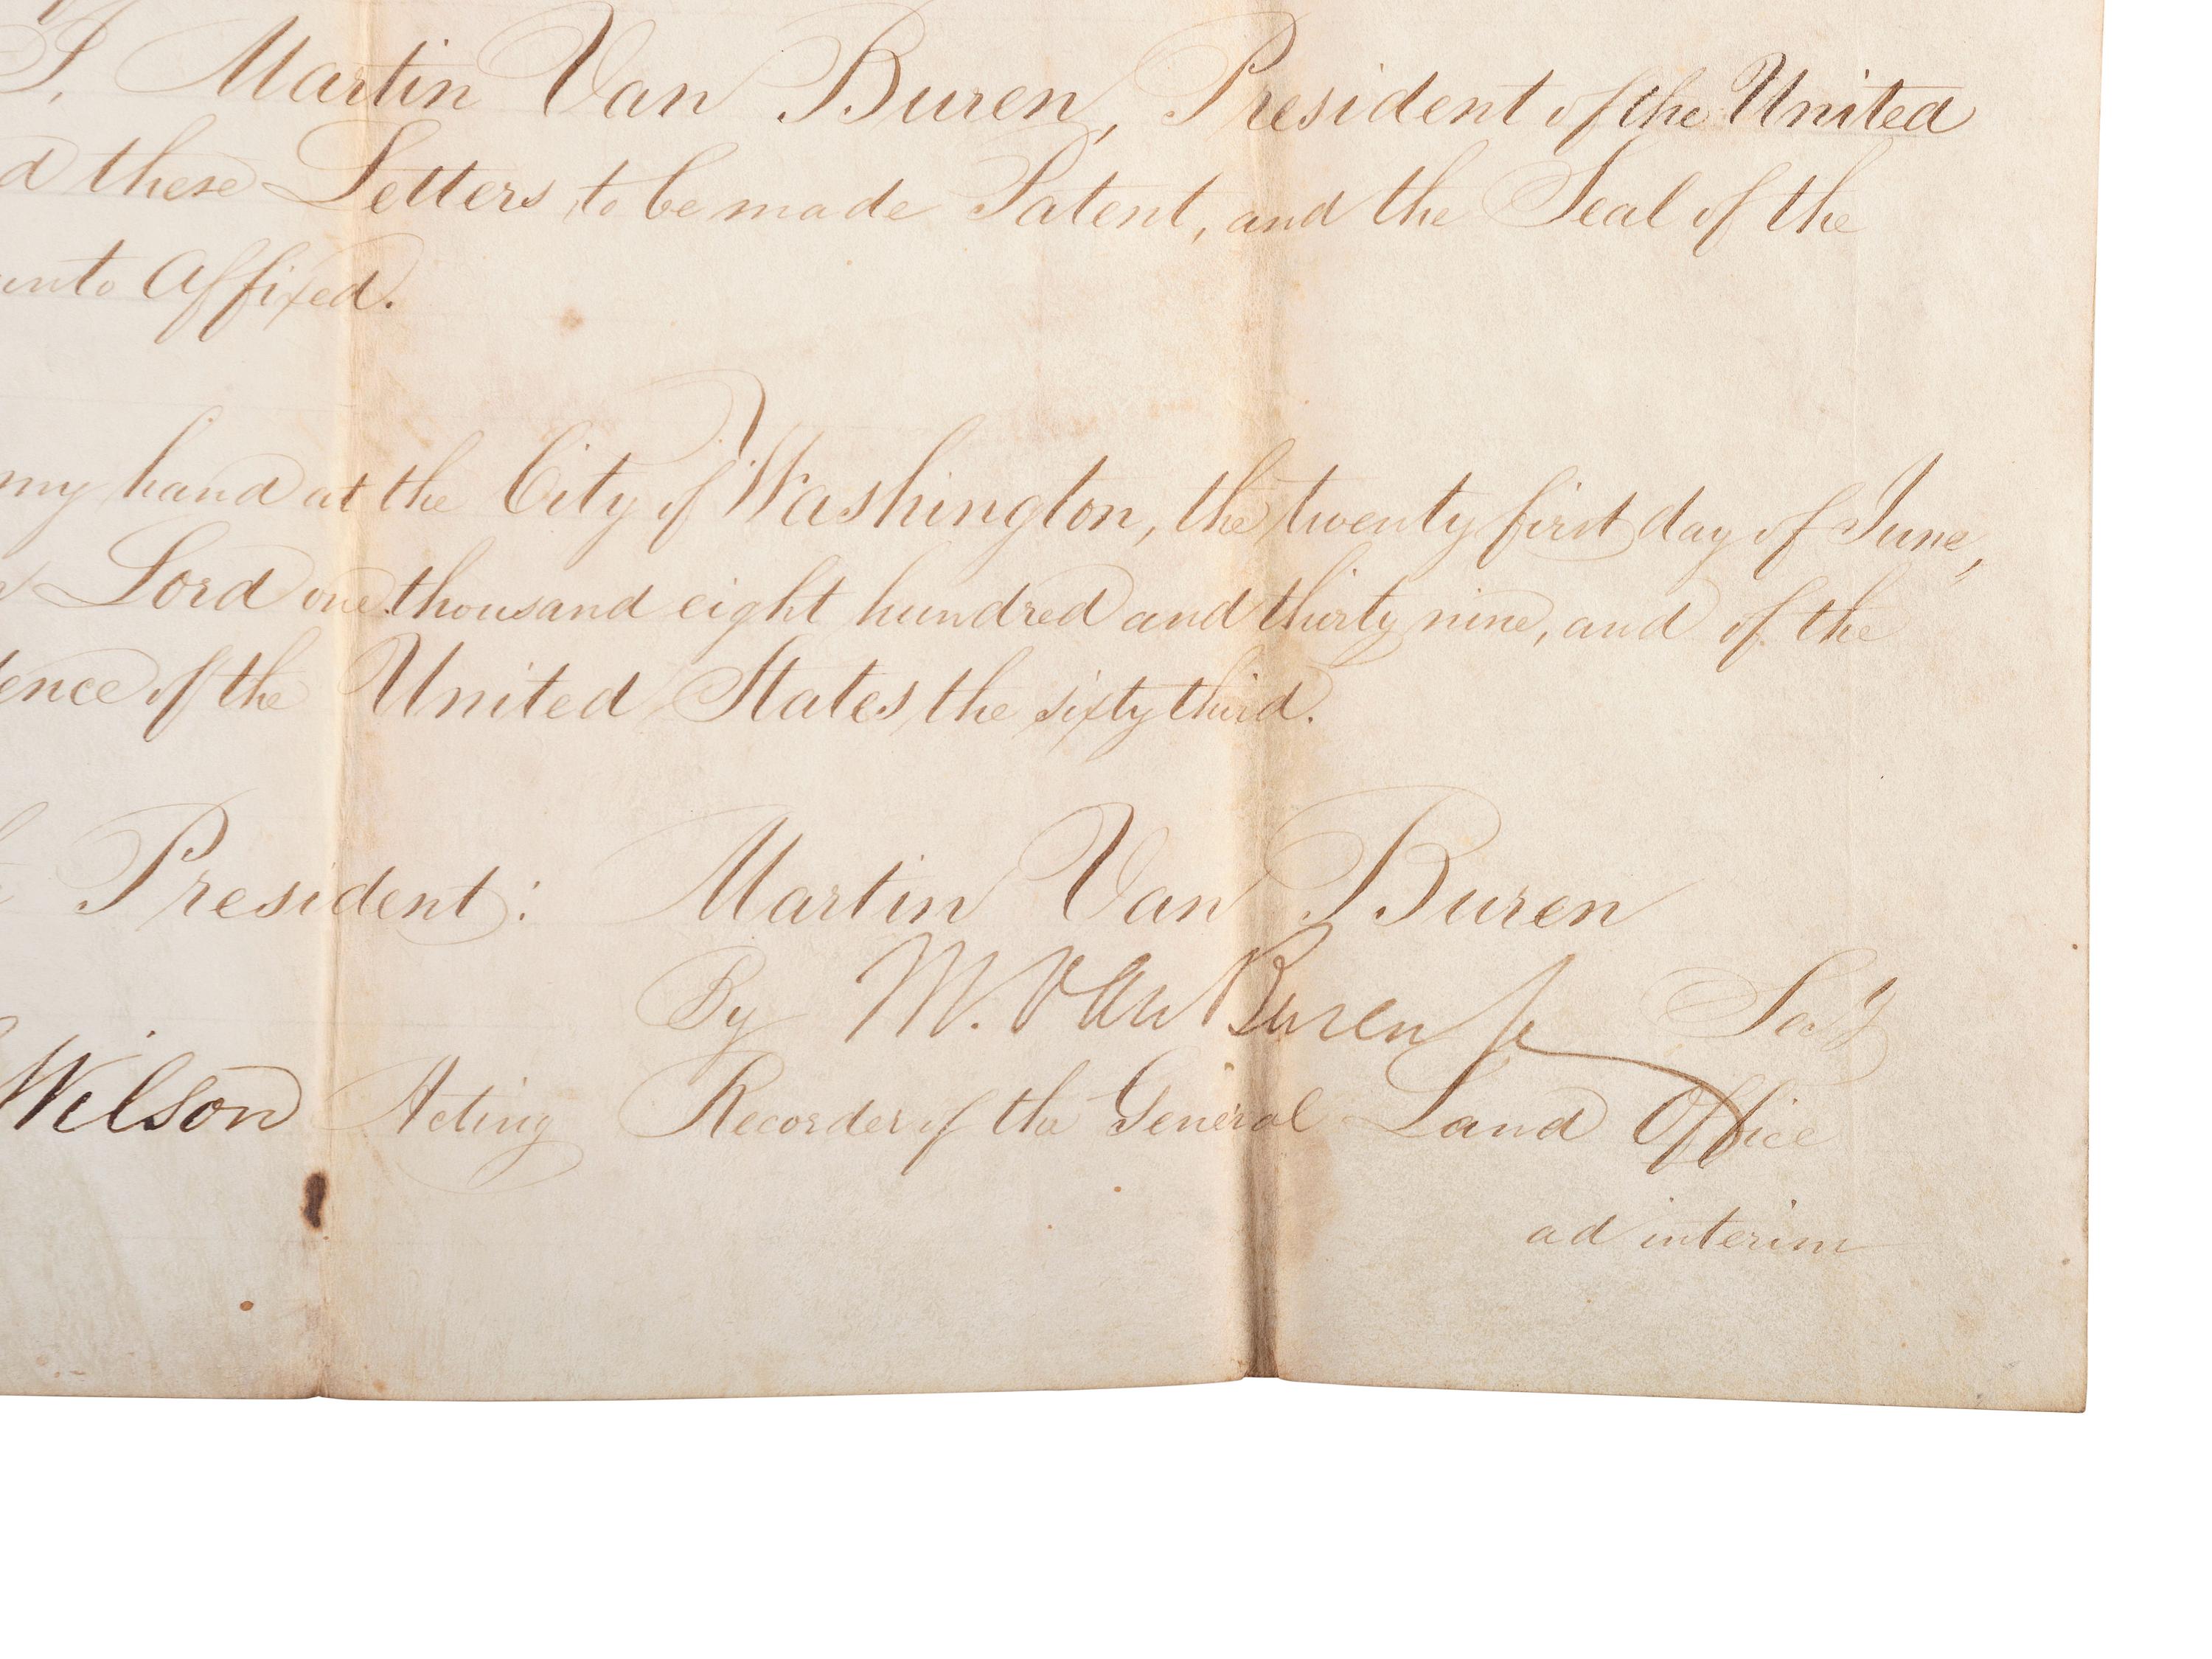 I, Martin Van Buren, President of the United
d these Letters to be made Patent, and the Seal of the
unto affixed.
my hand at the City of Washington, the twenty first day of June,
Lord one thousand eight hundred and thirty nine, and of the
ence of the United States the sixty third.
President: Martin Van Buren
By M. Van Buren Jr Sec'y
Wilson Acting Recorder of the General Land Office
ad interim